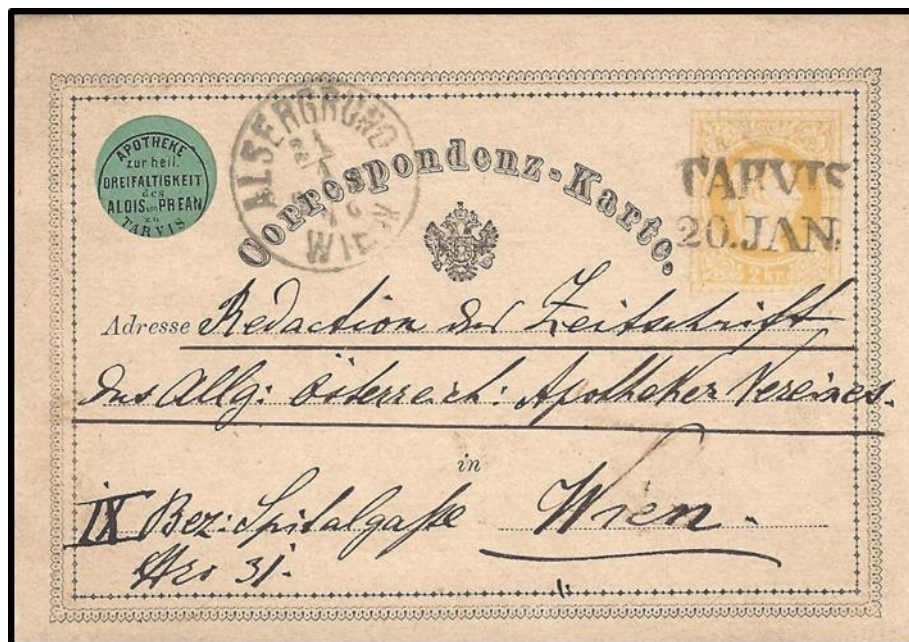 APOTHEKE
zur heil.
DREIFALTIGKEIT
des
ALOIS von PREAN
zu
TARVIS
ALSERGRUND
WIEN
Correspondenz-Karte.
TARVIS
20.JAN.
2 Kr.
Adresse Redaction der Zeitschrift
des Allg: Österreich: Apotheker Vereines.
in
IX Bez: Spitalgaße Wien.
Nro 31.